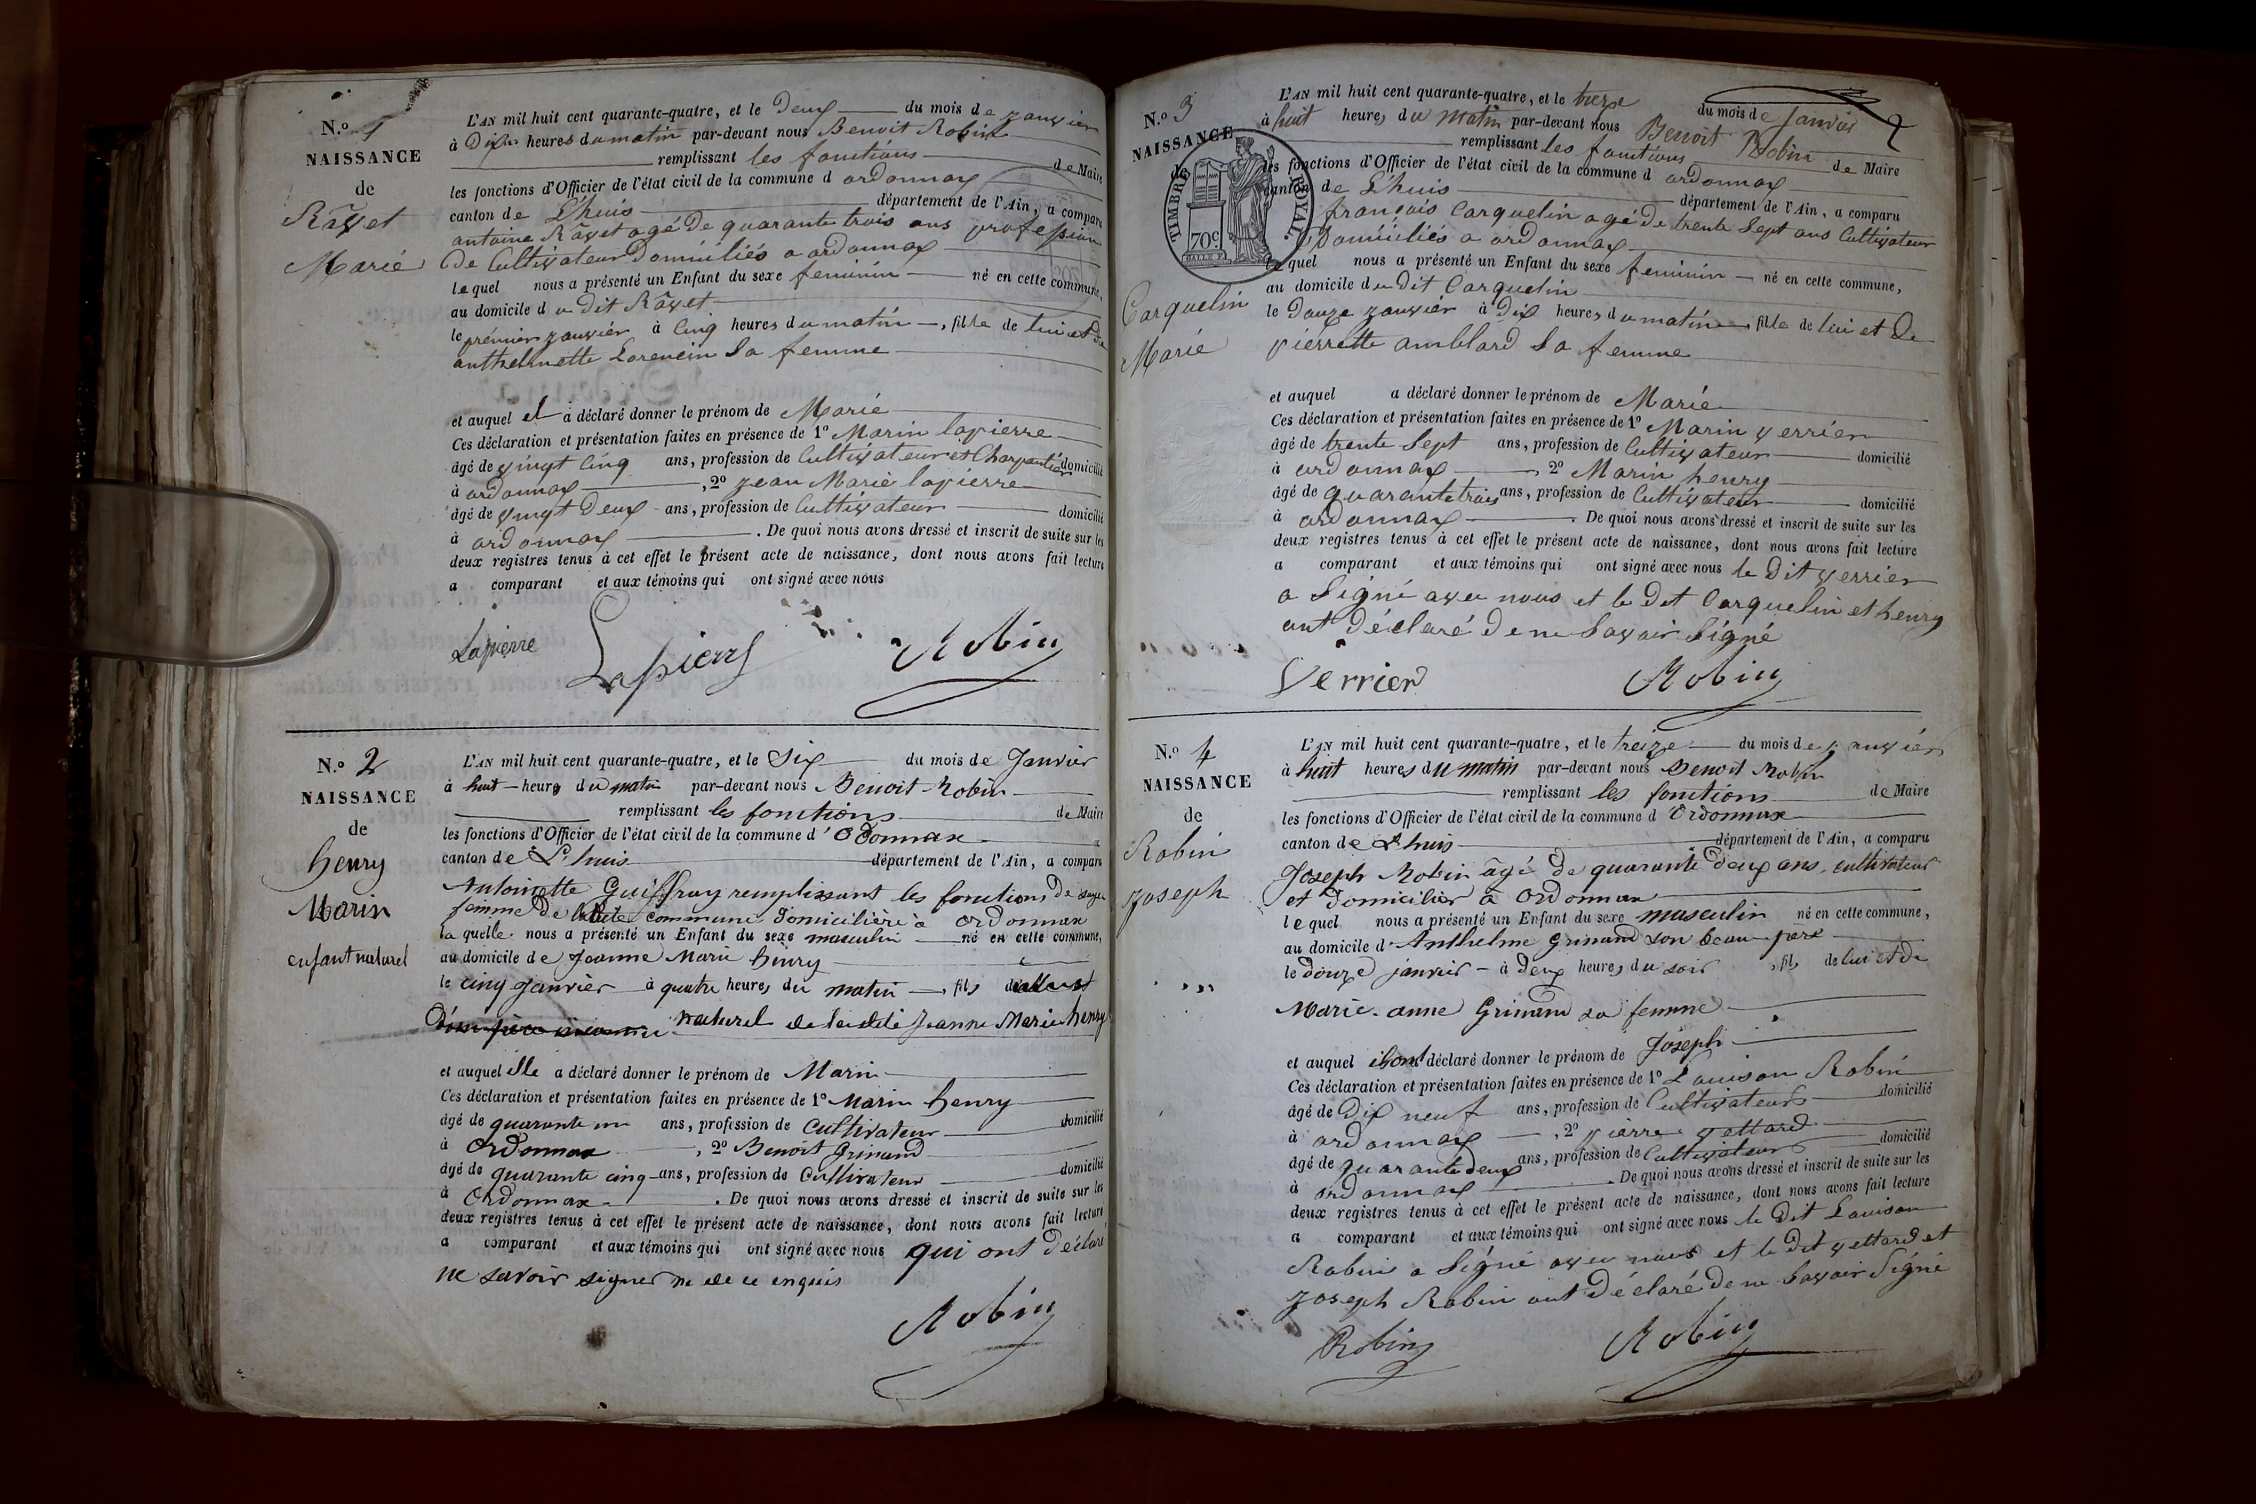 N.o 1
NAISSANCE
de
Rãvet
Marie
L'AN mil huit cent quarante-quatre, et le Deux du mois de janvier
à Dix heures du matin par-devant nous Benoit Robin
remplissant les fonctions de Maire
les fonctions d'Officier de l'état civil de la commune d ordonnax
canton de L'huis département de l'Ain, a comparu
antoine Rãvet agé de quarante trois ans profession
de Cultivateur Domiciliés a ordonnax
lequel nous a présenté un Enfant du sexe feminin né en cette commune,
au domicile du dit Rãvet
le prémier janvier à Cinq heures du matin, fille de lui et de
anthelmette sa femme
et auquel el a déclaré donner le prénom de Marie
Ces déclaration et présentation faites en présence de 1o Marin lapierre
âgé de vingt Cinq ans, profession de Cultivateur et Charpantier domicilié
à ordonnax, 2o jean Marie lapierre
âgé de vingt Deux ans, profession de Cultivateur domicilié
à ordonnax. De quoi nous avons dressé et inscrit de suite sur les
deux registres tenus à cet effet le présent acte de naissance, dont nous avons fait lecture
a comparant et aux témoins qui ont signé avec nous
Lapierre Lapierre Robin
N.o 2
NAISSANCE
de
henry
Marin
enfant naturel
L'AN mil huit cent quarante-quatre, et le Six du mois de Janvier
à huit heures du matin par-devant nous Benoit Robin
remplissant les fonctions de Maire
les fonctions d'Officier de l'état civil de la commune d' Odonnax
canton de L'huis département de l'Ain, a comparu
Antoinette Guiffray remplissant les fonctions de sage
femme de commune domicilière à ordonnax
la quelle nous a présenté un Enfant du sexe masculin né en cette commune,
au domicile de Jeanne Marie henry
le cinq Janvier à quatre heures du matin, fils
naturel de la dite Jeanne Marie henry
et auquel elle a déclaré donner le prénom de Marin
Ces déclaration et présentation faites en présence de 1o Marin henry
âgé de quarante un ans, profession de cultivateur domicilié
à Ordonnax, 2o Benoit Grinand
âgé de quarante cinq ans, profession de Cultivateur domicilié
à Ordonnax. De quoi nous avons dressé et inscrit de suite sur les
deux registres tenus à cet effet le présent acte de naissance, dont nous avons fait lecture
a comparant et aux témoins qui ont signé avec nous qui ont déclaré
ne savoir signer de ce enquis
Robin
2
N.o 3
NAISSANCE
de
TIMBRE ROYAL
70c
Carquelin
Marie
L'AN mil huit cent quarante-quatre, et le treze du mois de Janvier
à huit heures du matin par-devant nous Benoit Robin
remplissant les fonctions de Maire
les fonctions d'Officier de l'état civil de la commune d ordonnax
canton de L'huis département de l'Ain, a comparu
françois Carquelin agé de trente Sept ans Cultivateur
Domiciliés a ordonnax
lequel nous a présenté un Enfant du sexe feminin né en cette commune,
au domicile du dit Carquelin
le Douze janvier à Dix heures du matin, fille de lui et de
pierrette amblard sa femme
et auquel a déclaré donner le prénom de Marie
Ces déclaration et présentation faites en présence de 1o Marin verrier
âgé de trente Sept ans, profession de Cultivateur domicilié
à ordonnax, 2o Marin henry
âgé de quarante trois ans, profession de Cultivateur domicilié
à ordonnax. De quoi nous avons dressé et inscrit de suite sur les
deux registres tenus à cet effet le présent acte de naissance, dont nous avons fait lecture
a comparant et aux témoins qui ont signé avec nous le Dit verrier
a Signé avec nous et le Dit Carquelin et henry
ont Déclaré de ne Savoir Signé
Verrier Robin
N.o 4
NAISSANCE
de
Robin
joseph
L'AN mil huit cent quarante-quatre, et le treize du mois de janvier
à huit heures du matin par-devant nous Benoit Robin
remplissant les fonctions de Maire
les fonctions d'Officier de l'état civil de la commune d Ordonnax
canton de L'huis département de l'Ain, a comparu
Joseph Robin âgé de quarante deux ans, cultivateur
et Domicilier à Ordonnax
lequel nous a présenté un Enfant du sexe masculin né en cette commune,
au domicile d'Anthelme Grinand son beau-père
le douze janvier à deux heures du soir, fils de lui et de
Marie-anne Grinand sa femme
et auquel déclaré donner le prénom de Joseph
Ces déclaration et présentation faites en présence de 1o Louison Robin
âgé de Dix neuf ans, profession de Cultivateur domicilié
à ordonnax, 2o pierre vettard
âgé de quarante deux ans, profession de Cultivateur domicilié
à ordonnax. De quoi nous avons dressé et inscrit de suite sur les
deux registres tenus à cet effet le présent acte de naissance, dont nous avons fait lecture
a comparant et aux témoins qui ont signé avec nous le Dit Louison
Robin a Signé avec nous et le Dit vettard et
joseph Robin ont Déclaré de ne Savoir Signé
Robin Robin